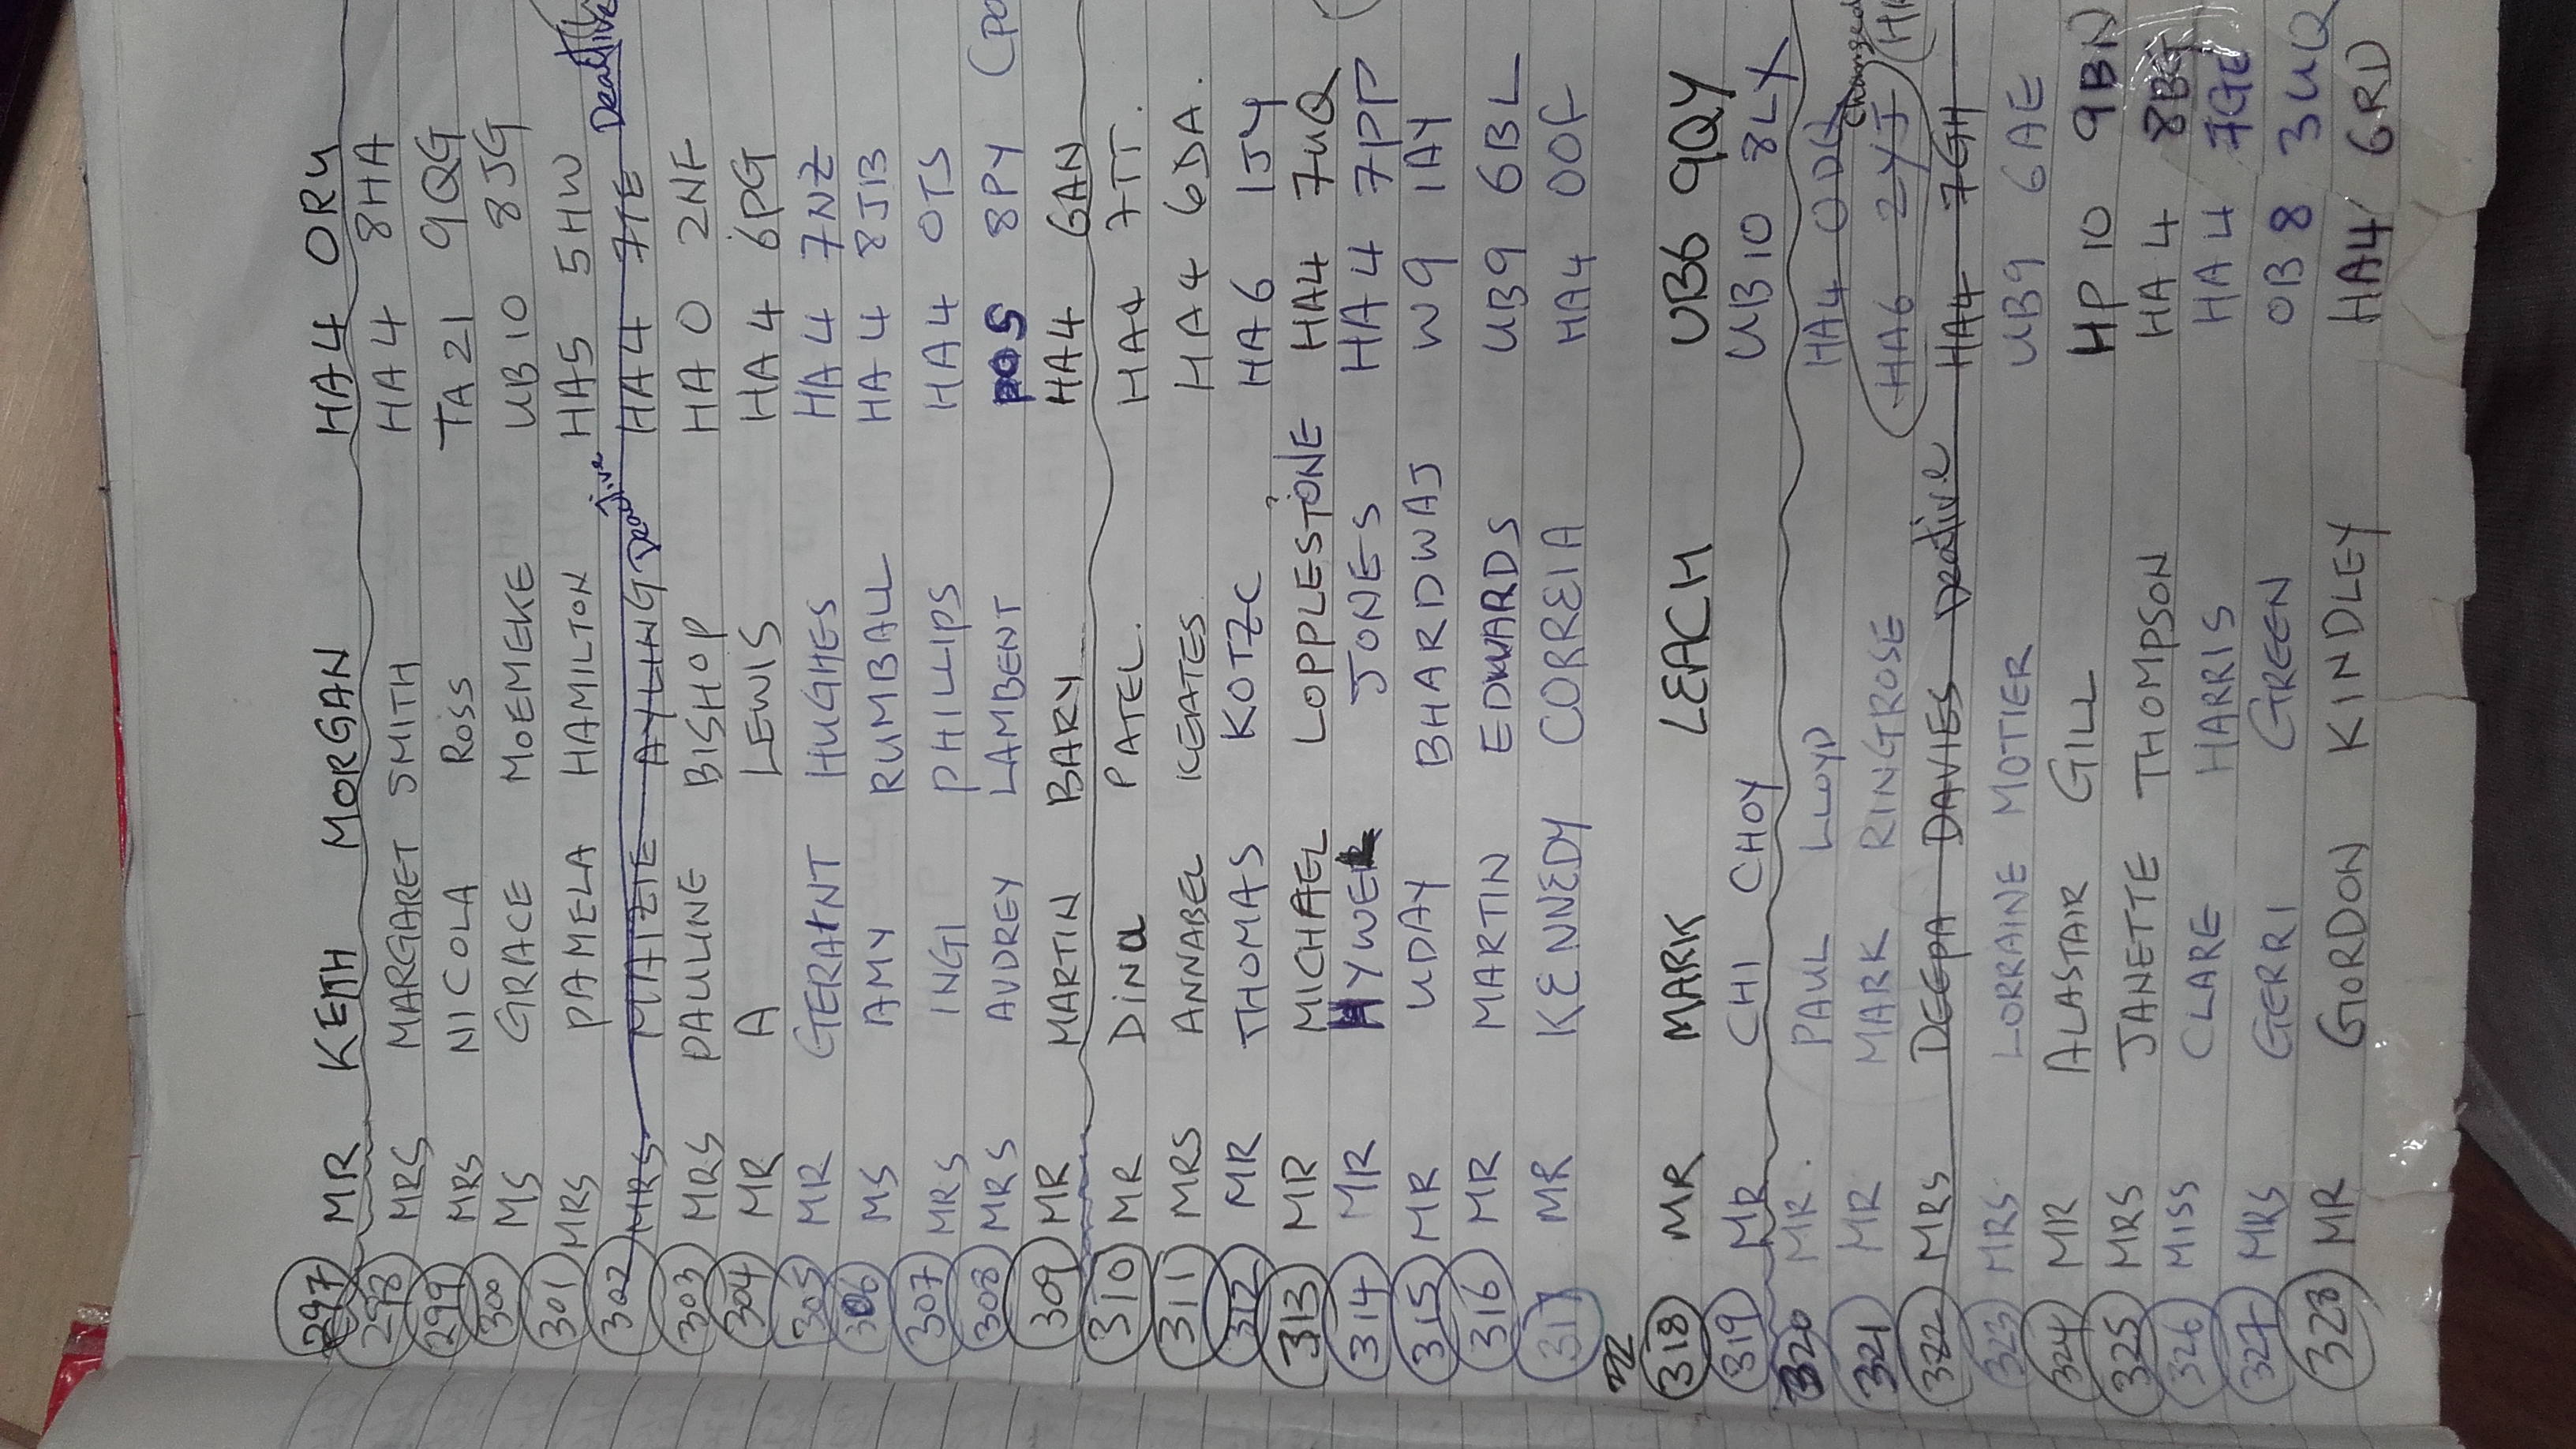 297 MR KEITH MORGAN HA4 0RU
298 MRS MARGARET SMITH HA4 8HA
299 MRS NICOLA ROSS TA21 9QG
300 MS GRACE MOEMEKE UB10 8JG
301 MRS PAMELA HAMILTON HA5 5HW
302 MRS MAIZIE AYLING Deactive HA4 7TE Deactive
303 MRS PAULINE BISHOP HA0 2NF
304 MR A LEWIS HA4 6PG
305 MR GERAINT HUGHES HA4 7NZ
306 MS AMY RUMBALL HA4 8JB
307 MRS INGI PHILLIPS HA4 0TS
308 MRS AUDREY LAMBENT 8PY (PO
309 MR MARTIN BARY HA4 GAN
310 MR DINA PATEL. HA4 7TT.
311 MRS ANNABEL KEATES HA4 6DA.
312 MR THOMAS KOTZC HA6 1JY
313 MR MICHAEL LOPPLESTONE ? HA4 7UQ
314 MR HYWEL JONES HA4 7PP
315 MR UDAY BHARDWAJ W9 1AY
316 MR MARTIN EDWARDS UB9 6BL
317 MR KENNEDY CORREIA HA4 0OF
318 MR MARK LEACH UB6 9QY
319 MR CHI CHOY UB10 8LX
320 MR. PAUL LLOYD HA4 0DQ
321 MR MARK RINGROSE HA6 2YJ Changed (HA
322 MRS DEEPA DAVIES Deative HA4 7GH
323 MRS LORRAINE MOTIER UB9 6AE
324 MR ALASTAIR GILL HP10 9BN
325 MRS JANETTE THOMPSON HA4 8BG
326 MISS CLARE HARRIS HA4 7GE
327 MRS GERRI GREEN OB8 3UQ
328 MR GORDON KINDLEY HA4 6RD